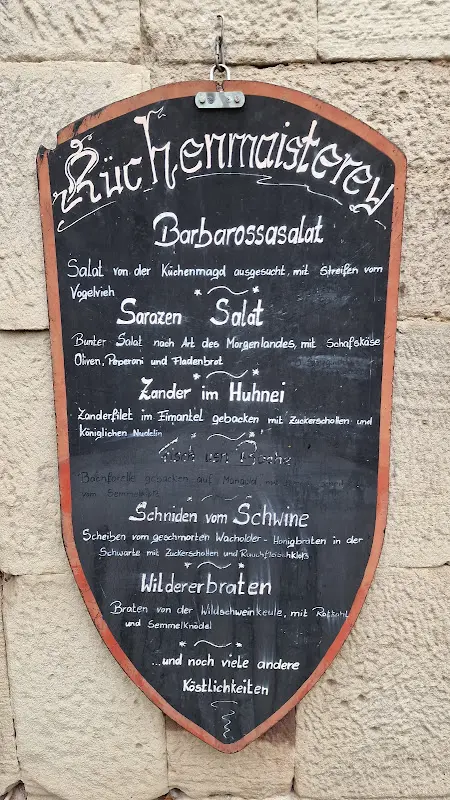 Küchenmaisterey
Barbarossasalat
Salat von der Küchenmagd ausgesucht, mit Streifen vom
Vogelvieh
Sarazen Salat
Bunter Salat nach Art des Morgenlandes, mit Schafskäse
Oliven, Peperoni und Fladenbrot
Zander im Huhnei
Zanderfilet im Eimantel gebacken mit Zuckerschollen und
Königlichen Nudeln
Bachforelle gebacken auf Mangold
vom
Schniden vom Schwine
Scheiben vom geschmorten Wacholder-Honigbraten in der
Schwarte mit Zuckerschollen und Rauchfleischkleks
Wildererbraten
Braten von der Wildschweinkeule, mit Rotkohl
und Semmelknödel
...und noch viele andere
Köstlichkeiten